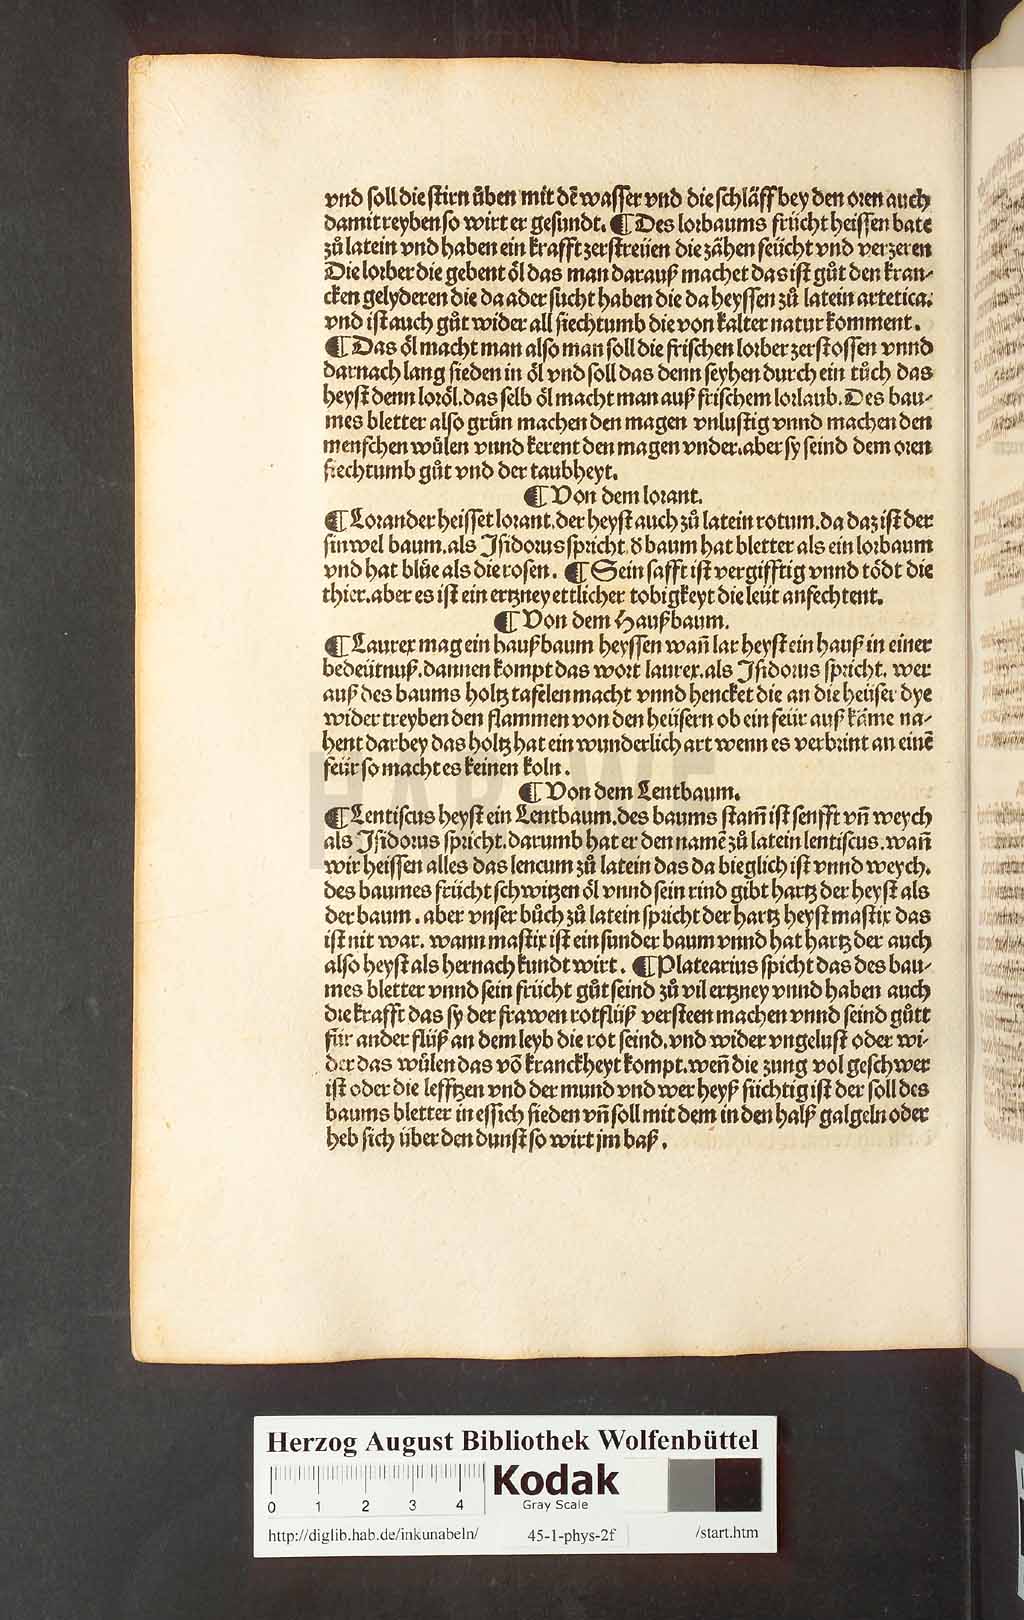 vnd soll die stirn üben mit dē wasser vnd die schläff bey den oren auch
damit reyben so wirt er gesundt. ¶ Des lorbaums frücht heissen bate
zů latein vnd haben ein krafft zerstreüen die zähen feücht vnd verzeren
Die lorber die gebent öl das man darauß machet das ist gůt den kran-
cken gelyderen die da ader sucht haben die da heyssen zů latein artetica.
vnd ist auch gůt wider all siechtumb die von kalter natur komment.
¶ Das öl macht man also man soll die frischen lorber zerstossen vnnd
darnach lang sieden in öl vnd soll das denn seyhen durch ein tůch das
heyst denn loröl. das selb öl macht man auß frischem lorlaub. Des bau-
mes bletter also grün machen den magen vnlustig vnnd machen den
menschen wůlen vnnd kerent den magen vnder. aber sy seind dem oren
siechtumb gůt vnd der taubheyt.
¶ Von dem lorant.
¶ Lorander heisset lorant. der heyst auch zů latein rotum. da daz ist der
sinwel baum. als Isidorus spricht. ð baum hat bletter als ein lorbaum
vnd hat blüe als die rosen. ¶ Sein safft ist vergifftig vnnd tödt die
thier. aber es ist ein ertzney ettlicher tobigkeyt die leüt anfechtent.
¶ Von dem Haußbaum.
¶ Laurex mag ein haußbaum heyssen wañ lar heyst ein hauß in einer
bedeütnuß. dannen kompt das wort laurex. als Isidorus spricht. wer
auß des baums holtz tafelen macht vnnd hencket die an die heüser dye
wider treyben den flammen von den heüsern ob ein feür auß käme na-
hent darbey das holtz hat ein wunderlich art wenn es verbrint an einē
feür so macht es keinen koln.
¶ Von dem Lentbaum.
¶ Lentiscus heyst ein Lentbaum. des baums stam̄ ist senfft vñ weych
als Isidorus spricht. darumb hat er den namē zů latein lentiscus. wañ
wir heissen alles das lencum zů latein das da bieglich ist vnnd weych.
des baumes frücht schwitzen öl vnnd sein rind gibt hartz der heyst als
der baum. aber vnser bůch zů latein spricht der hartz heyst mastix das
ist nit war. wann mastix ist ein sunder baum vnnd hat hartz der auch
also heyst als hernach kundt wirt. ¶ Platearius spicht das des bau-
mes bletter vnnd sein frücht gůt seind zů vil ertzney vnnd haben auch
die krafft das sy der frawen rotflüß versteen machen vnnd seind gůtt
für ander flüß an dem leyb die rot seind. vnd wider vngelust oder wi-
der das wůlen das vō kranckheyt kompt. weñ die zung vol geschwer
ist oder die lefftzen vnd der mund vnd wer heyß süchtig ist der soll des
baums bletter in essich sieden vñ soll mit dem in den halß galgeln oder
heb sich über den dunst so wirt jm baß.
HAB-WF
Herzog August Bibliothek Wolfenbüttel
0 1 2 3 4
Kodak
Gray Scale
http://diglib.hab.de/inkunabeln/ 45-1-phys-2f /start.htm